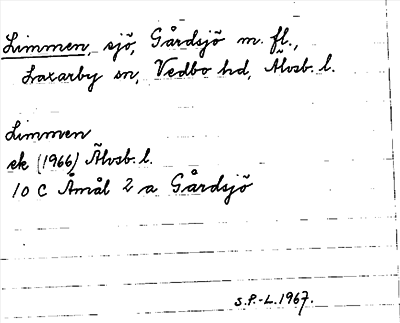 Limmen, sjö, Gårdsjö m. fl.,
Laxarby sn, Vedbo hd, Älvsb. l.
Limmen
ek (1966) Älvsb. l.
10 C Åmål 2 a Gårdsjö
S.P.-L. 1967.